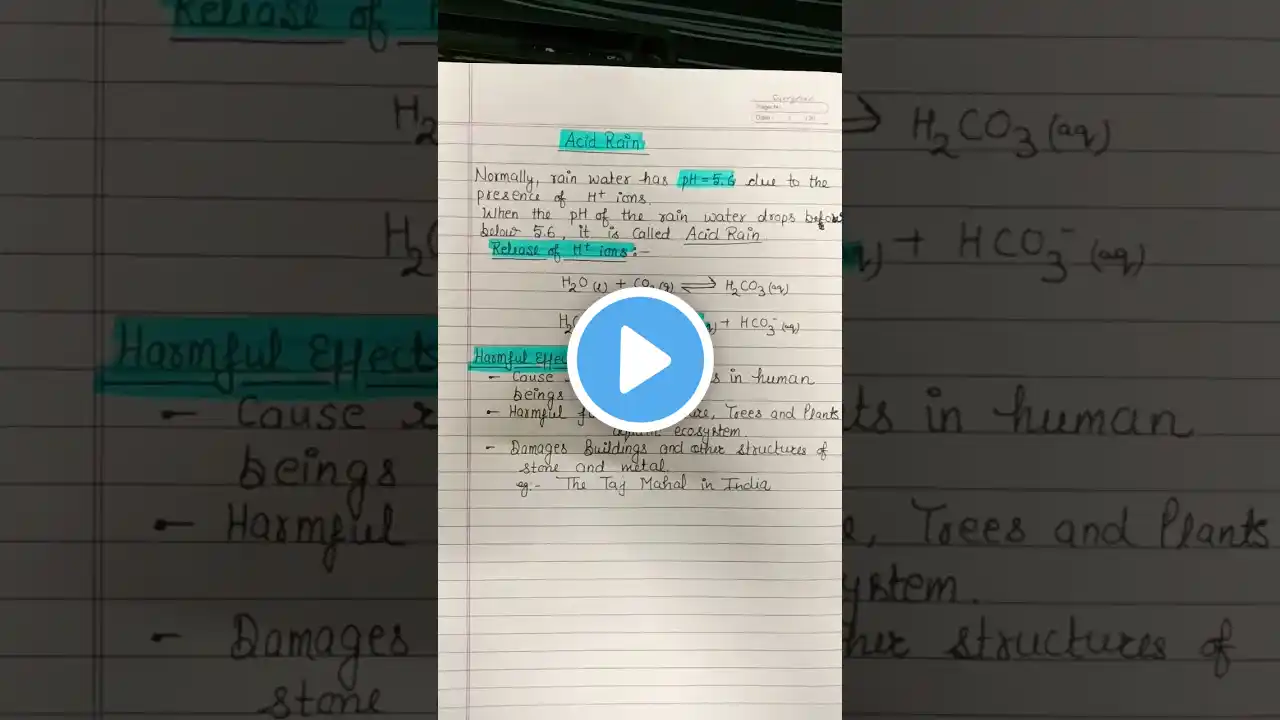 Acid Rain
Normally, rain water has pH = 5.6 due to the
presence of H⁺ ions.
When the pH of the rain water drops
below 5.6, it is called Acid Rain
Release of H⁺ ions :-
H₂O (l) + CO₂ (g) ⇌ H₂CO₃ (aq)
+ HCO₃⁻ (aq)
Harmful
- Cause in human
beings
- Harmful Trees and Plants
ecosystem.
- Damages Buildings and other structures of
stone and metal.
eg:- The Taj Mahal in India